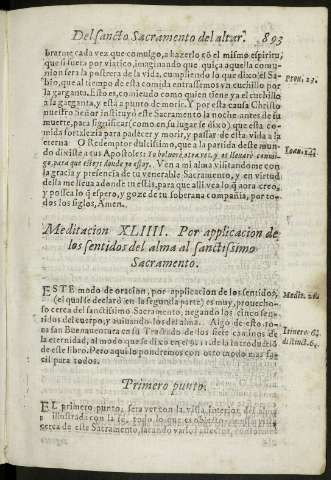 Del sancto Sacramento del altar. 893
brarme cada vez que comulgo, a hazerlo cō el mismo espiritu,
que si fuera por viatico, imaginando que quiça aquella comu-
nion sera la postrera de la vida, cumpliendo lo que dixo el Sa-
bio, que al tiempo de esta comida entrassemos vn cuchillo por
la garganta. Esto es, comiendo como quien tiene ya el cuchillo
a la garganta, y está a punto de morir. Y por esta causa Christo
nuestro Señor instituyó este Sacramento la noche antes de su
muerte, para significar (como en su lugar se dixo) que esta co-
mida fortalezia para padecer y morir, y passar de esta vida a la
eterna. O Redemptor dulcissimo, que a la partida deste mun-
do dixiste a tus Apostoles: Yo boluere otra vez, y os lleuaré conmi-
go, para que esteys donde yo estoy. Ven a mi alma visitandome con
la gracia y presencia de tu venerable Sacramento, y en virtud
del a me lleua adonde tu estás, para que alli vea lo q̄ aora creo,
y possea lo q̄ espero, y goze de tu soberana compañia, por to-
dos los siglos, Amen.
Prou. 23.
Ioan. 14.
Meditacion XLIIII. Por applicacion de
los sentidos del alma al sanctissimo
Sacramento.
ESTE modo de oracion, por applicacion de los sentidos,
(el qual se declaró en la segunda parte) es muy prouecho-
so cerca del sanctissimo Sacramento, negando los cinco sen-
tidos del cuerpo, y auiuando los del alma. Algo de esto to-
ca san Buenauentura en su Tratado de los siete caminos de
la eternidad, al modo que se dixo en el de la introductiō
de este libro. Pero aqui lo pondremos con otro modo mas fa-
cil para todos.
Medit. 26
Itinere. 6.
distinct. 6.
Primero punto.
EL primero punto, sera ver con la vista interior del alma
illustrada con la fè, todo lo que es objeto
cerca de este Sacramento, sacando varios affectos, conforme